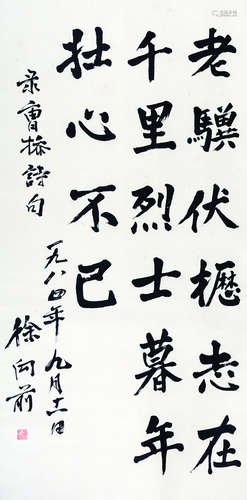 老骥伏櫪志在
千里烈士暮年
壮心不已
录曹操詩句
一九八四年九月十一日
徐向前